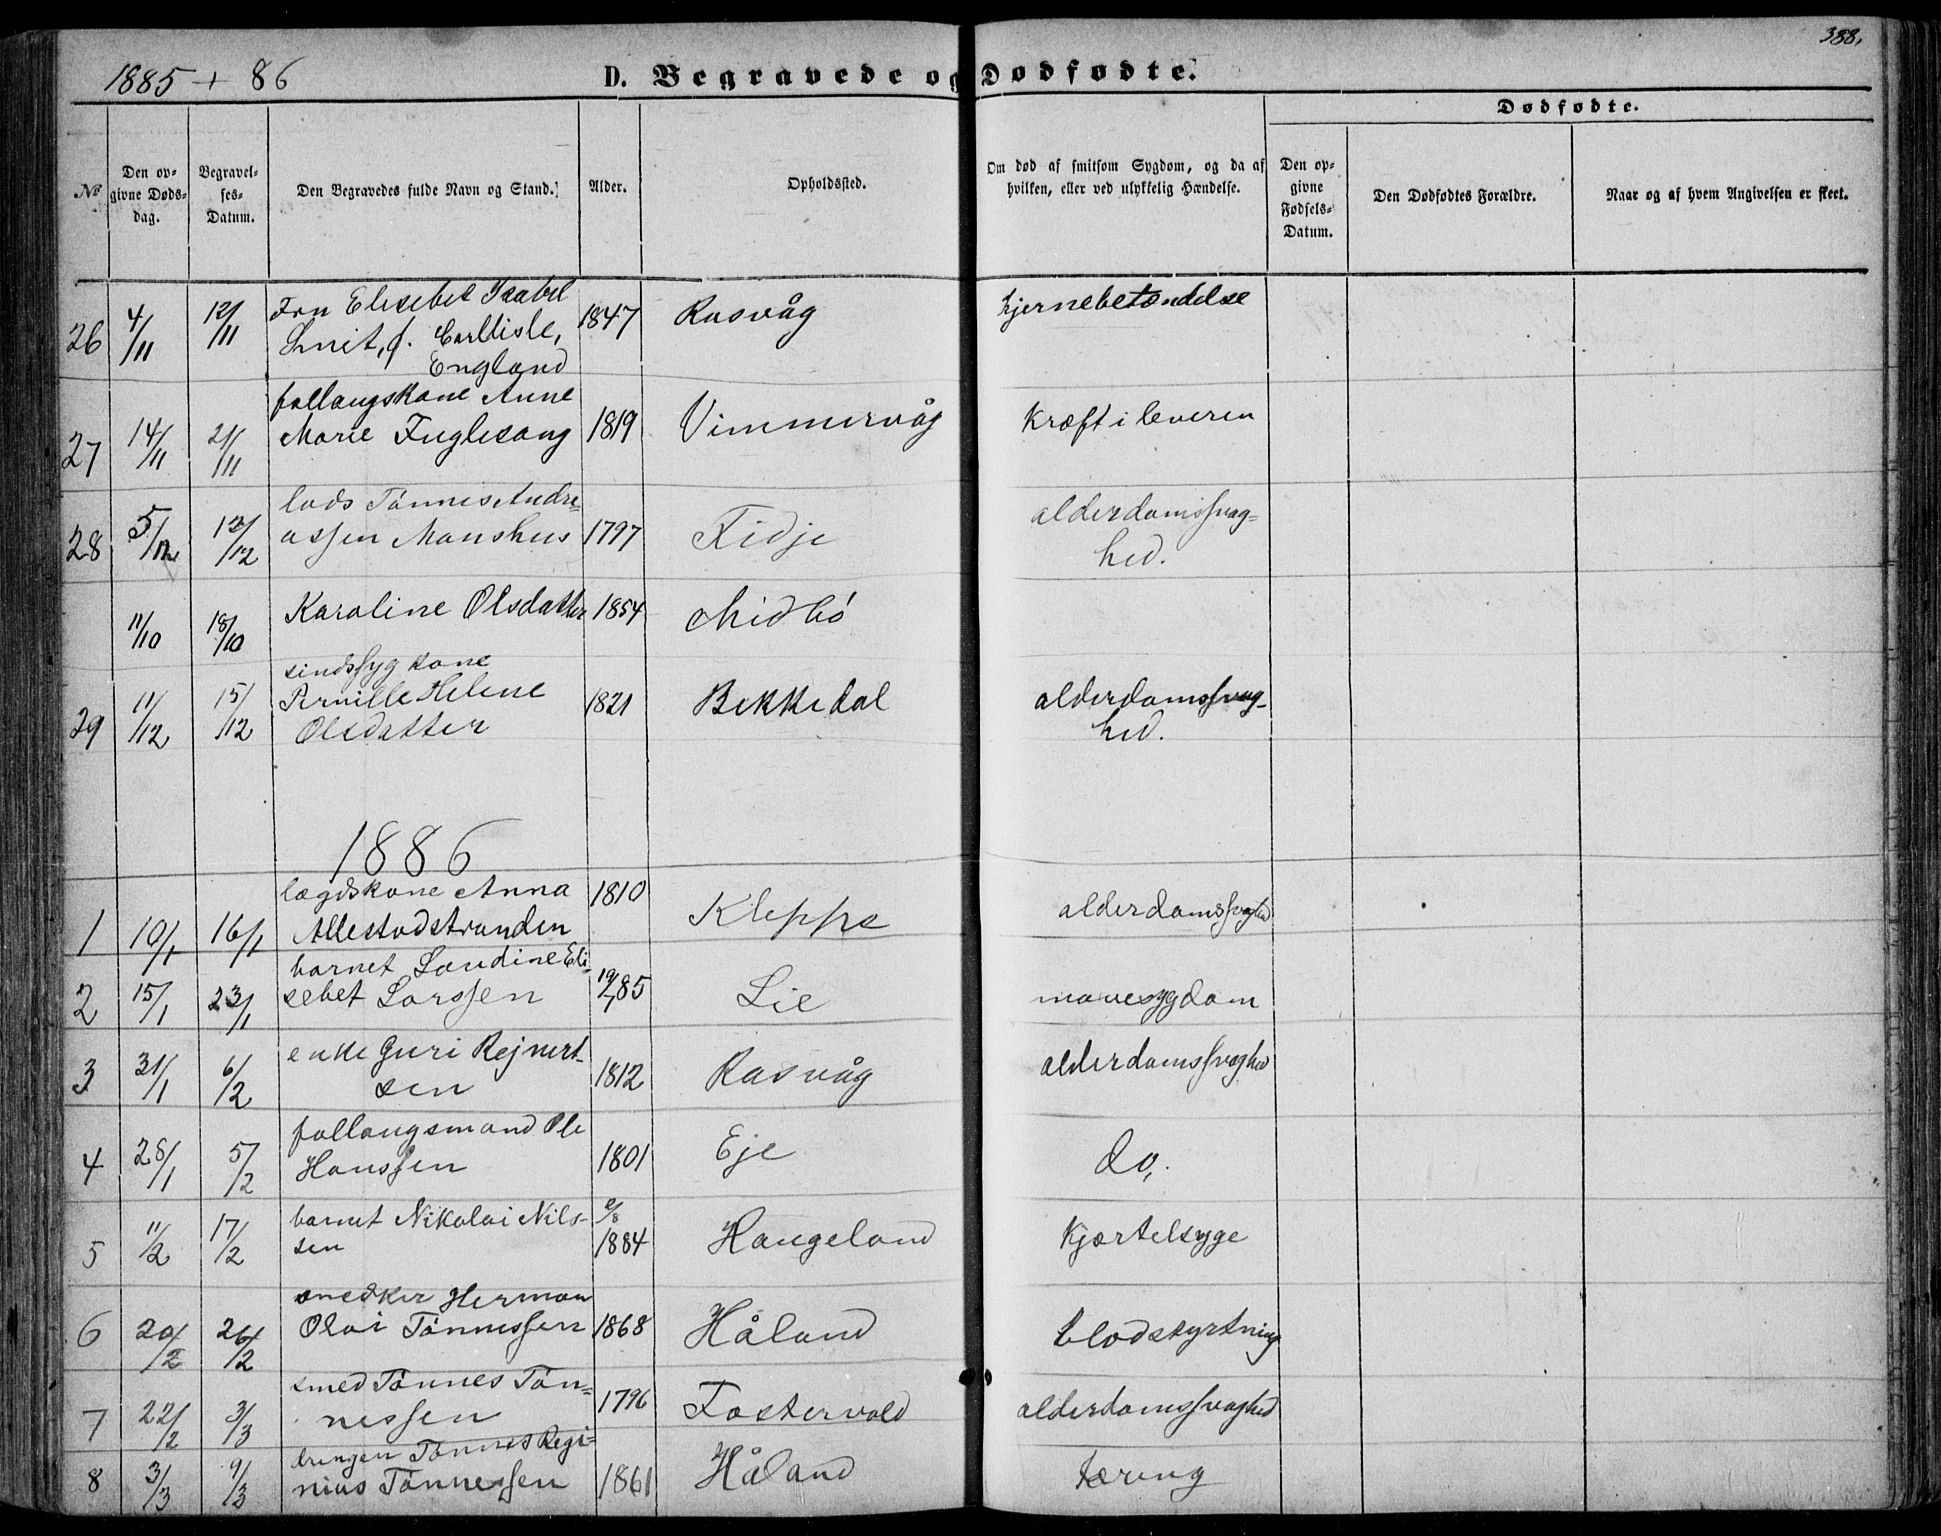 388,
1885 + 86
D. Begravede og Dødfødte.
Dødfødte.
No
Den opgivne Dødsdag.
Begravelses-Datum.
Den Begravedes fulde Navn og Stand.
Alder.
Opholdssted.
Om død af smitsom Sygdom, og da af hvilken, eller ved ulykkelig Hændelse.
Den opgivne Fødsels-Datum.
Den Dødfødtes Forældre.
Naar og af hvem Angivelsen er skeet.
26 4/11 12/11 Fru Elisebet Isabel 1847 Rasvåg hjernebetændelse
Smit, f. Carllisle,
England
27 14/11 21/11 føllaugskone Anne
Marie Fuglesang 1819 Vimmervåg kræft i leveren
28 5/12 12/12 lods Tønnes Andre=
assen Monshus 1797 Fidje alderdomssvag=
hed.
11/10 18/10 Karoline Olsdatter 1854 Midbö
29 11/12 15/12 sindssyg kone
Pernille Helene 1821 Bekkedal alderdomssvag-
Olsdatter hed.
1886
1 10/1 16/1 lægdskone Anna 1810 Kleppe alderdomssvaghed
Allestadstranden
2 15/1 23/1 barnet Laudine Eli-
sebet Larssen 19/7 85 Lie mavesygdom
3 31/1 6/2 enke Guri Rejnert-
sen 1812 Rasvåg alderdomssvaghed
4 28/1 5/2 føllaugsmand Ole
Hanssen 1801 Eje do,.
5 11/2 17/2 barnet Nikolai Nils-
sen 2/8 1884 Haugeland kjærtelsyge
6 20/2 26/2 snedker Herman
Olai Tønnessen 1868 Håland blodstyrtning
7 22/2 3/3 smed Tønnes Tøn=
nessen 1796 Fostervold alderdomssvaghed
8 3/3 9/3 drengen Tønnes Regi-
nius Tønnessen 1861 Håland tæring